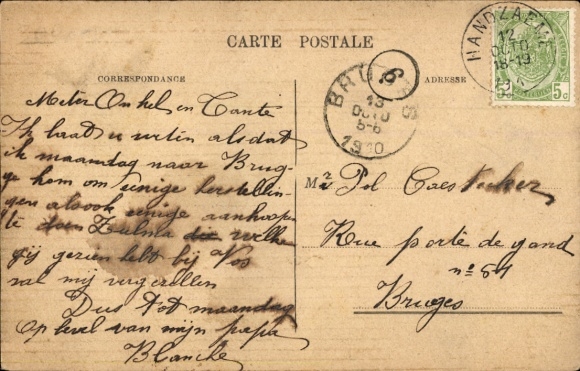 CARTE POSTALE
CORRESPONDANCE
ADRESSE
HANDZAEME
12
OCTO
18-19
5c 5c
6
BRUGES
13
OCTO
5-6
1910
Meter Onkel en Tante
Ik laat u weten als dat
ik maandag naar Brug-
ge kom om eenige herstellin-
gen alsook eenige aankoopen
te doen Zulma die welke
gij gezien hebt bij Vos
zal mij vergezellen
Dus tot maandag
Op bevel van mijn papa
Blanche
Mr Pol Caestecker
Rue porte de gand
no 81
Bruges